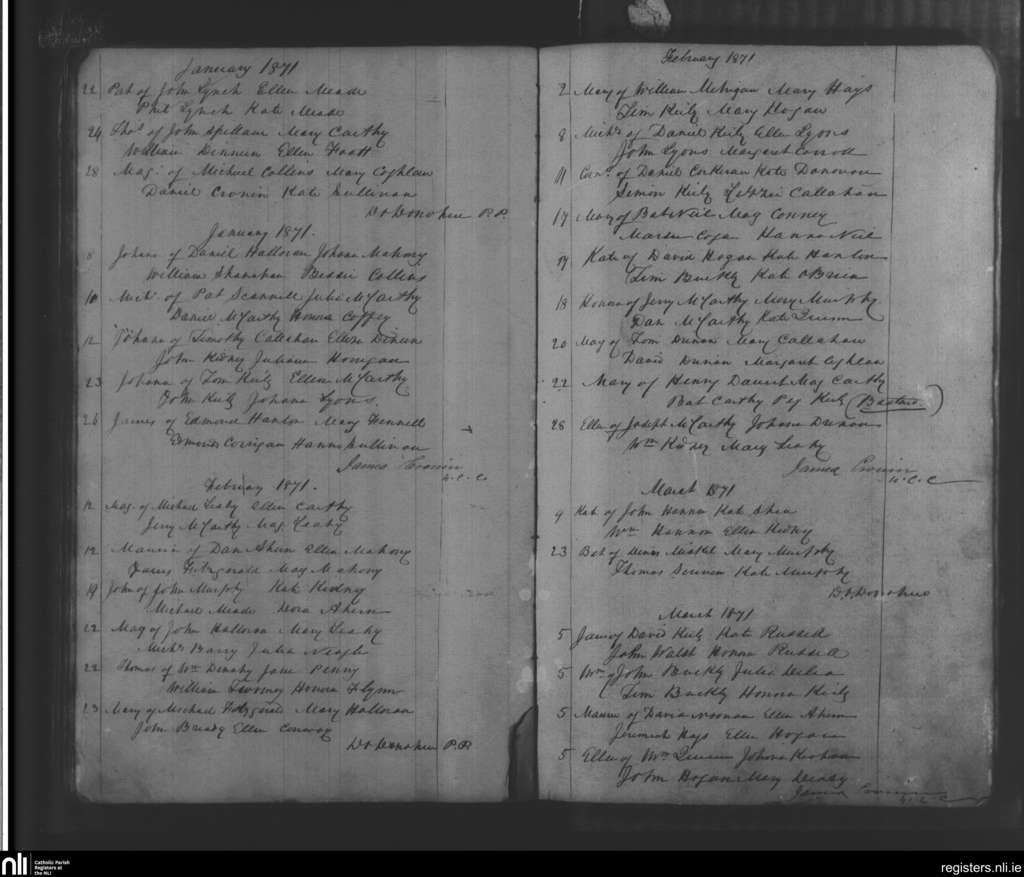 January 1871
22 Pat of John Lynch Ellen Meade
Phil Lynch Kate Meade
24 Thos of John Spillane Mary Carthy
William Dinneen Ellen
28 Mag. of Michael Collins Mary Coghlan
Daniel Cronin Kate Sullivan
D O Donohue P.P.
January 1871.
8 Johana of Daniel Halloran Johana Mahony
William Shanahan Bessie Collins
10 Mich. of Pat Scannell Julia McCarthy
Daniel McCarthy Honora Coffey
12 Johana of Timothy Callaghan Ellen
John Kidney Juliana Horrigan
23 Johana of Tom Kiely Ellen McCarthy
John Kiely Johana Lyons.
26 James of Edmond Hanlon Mary Fennell
Edmond Corrigan Hanna Sullivan
James Cronin
C.C.
February 1871.
12 Mag. of Michael Leahy Ellen Carthy
Jerry McCarthy Mag. Leahy
12 of Dan Ahern Ellen Mahony
James Fitzgerald Mary Mahony
19 John of John Murphy Kate Kidney
Michael Meade Nora Ahern
22 Mag of John Halloran Mary Leahy
Michl Barry Julia Neagle
22 Thomas of Wm Denahy Jane Penny
William Twomey Honora Flynn
23 Mary of Michael Fitzgerald Mary Halloran
John Ellen Conway
D O Donohue P.P.
February 1871
2 Mary of William Mehigan Mary Hays
Tim Kiely Mary Hogan
8 Michl of Daniel Kiely Ellen Lyons
John Lyons Margaret Carroll
11 Corns. of Daniel Corkeran Kate Donovan
Simon Kiely Callahan
17 Mary of Bat Neil Mag
Hanna Neil
17 Kate of David Hogan Kate Hanlon
Tim Buckly Kate OBrien
18 Honora of Jerry McCarthy Mary Murphy
Dan McCarthy Kate Quinn
20 Mag of Tom Mary Callahan
David Margaret Coghlan
22 Mary of Henry Mag Carthy
Bat Carthy Peg Kiely
28 Ellen of Joseph McCarthy Johana
Wm Kidney Mary Leahy
James Cronin
C.C.
March 1871
9 Kate of John Hannon Kate Shea
Wm Hannon Ellen Kidney
23 Bat of Mary Murphy
Thomas Kate Murphy
D O Donohue
March 1871
5 James of David Kiely Kate Russell
John Walsh Honora Russell
5 Wm of John Buckly Julia
Tim Buckly Honora Kiely
5 of David Noonan Ellen Ahern
Jeremiah Hays Ellen Hogan
5 Ellen of Wm Quinn Johana
John Hogan Mary
James Cronin
C.C.
nli
Catholic Parish
Registers at
the NLI
registers.nli.ie